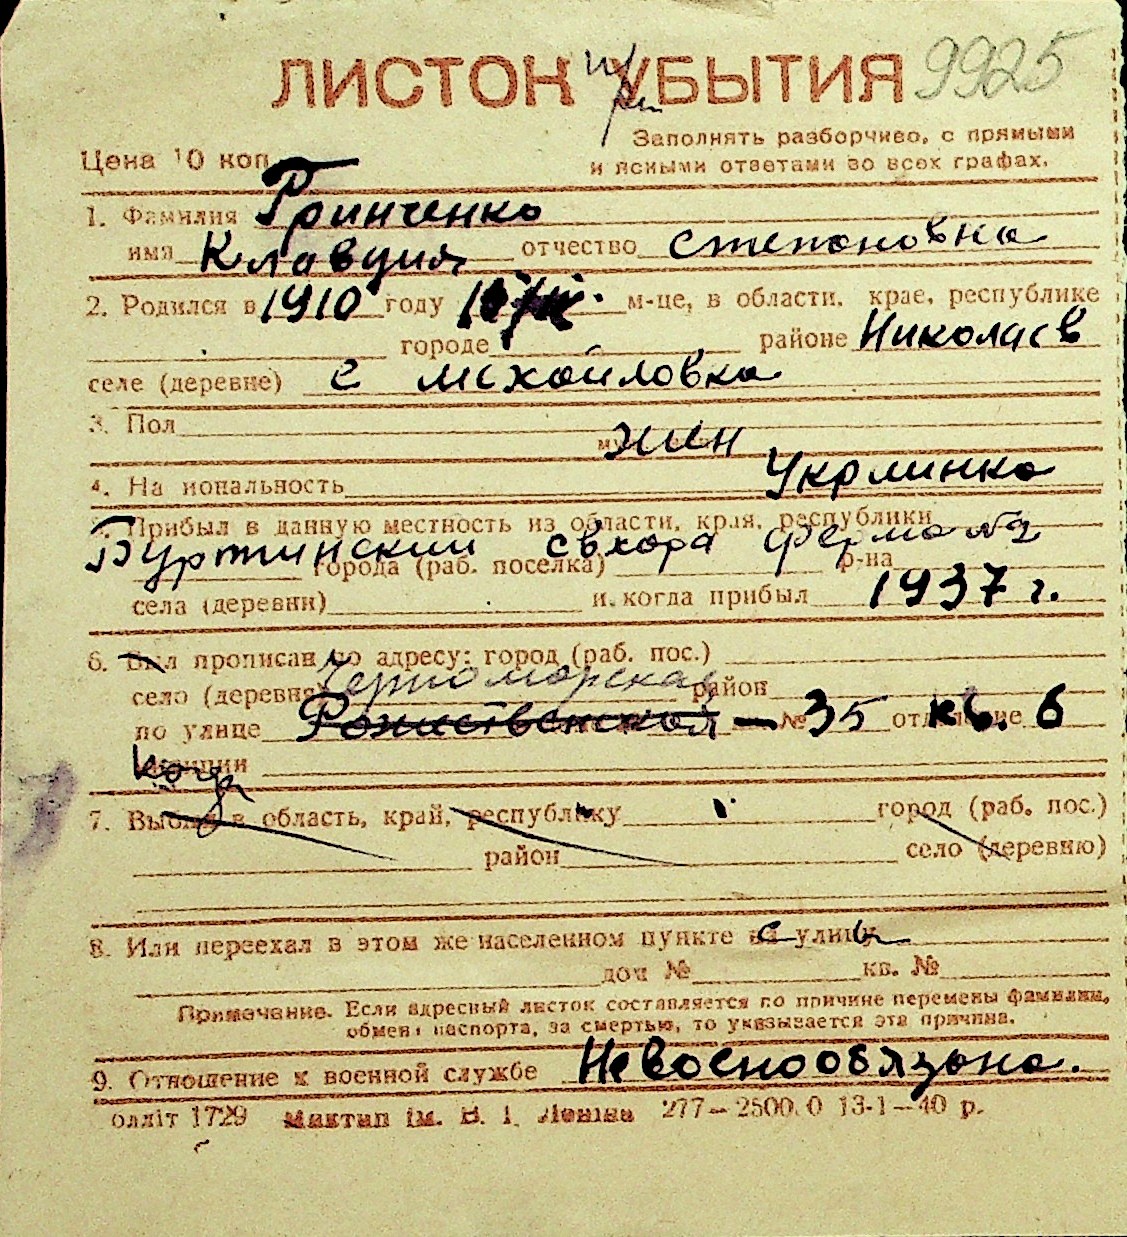 ЛИСТОК УБЫТИЯ 9925
при
Заполнять разборчиво, с прямыми
Цена 10 коп. и ясными ответами во всех графах.
1. Фамилия Гринченко
имя Клавдия отчество Степановна
2. Родился в 1910 году м-це, в области, крае, республике
городе районе Николаев
селе (деревне) с михайловка
3. Пол жен
4. На иональность Украинка
5. Прибыл в данную местность из области, края, республики
Буртинский свхоза ферма №2
города (раб. поселка) р-на
села (деревни) и когда прибыл 1937 г.
6. Был прописан по адресу: город (раб. пос.)
село (деревня) Черноморская район
по улице Рожиственской — № 35 отделение кв. 6
милиции
когда
7. Выбыл в область, край, республику город (раб. пос.)
район село (деревню)
8. Или переехал в этом же населенном пункте на улицу
дом № кв. №
Примечание. Если адресный листок составляется по причине перемены фамилии,
обмена паспорта, за смертью, то указывается эта причина.
9. Отношение к военной службе Невоенообязана.
блліт 1729 Миктип ім. В. І. Леніна 277—2500.0 13-1—40 р.